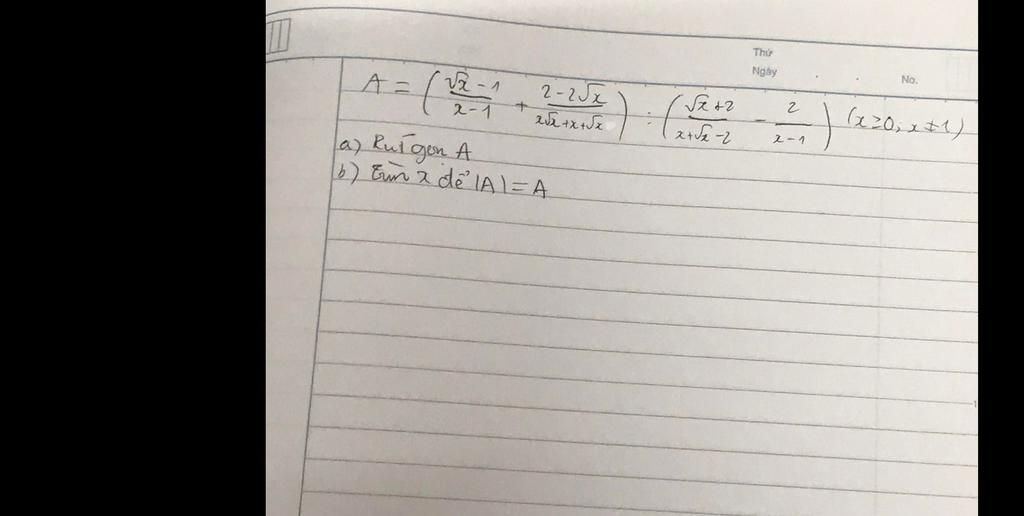 Thứ
Ngày . . No.
A = (\frac{√x - 1}{x - 1} + \frac{2 - 2√x}{x√x + x + √x}) : (\frac{√x + 2}{x + √x - 2} - \frac{2}{x - 1}) (x ≥ 0; x ≠ 1)
a) Rút gọn A
b) Tìm x để |A| = A